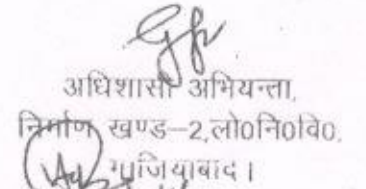 अधिशासी अभियन्ता,
निर्माण खण्ड–2,लो0नि0वि0,
गाजियाबाद।